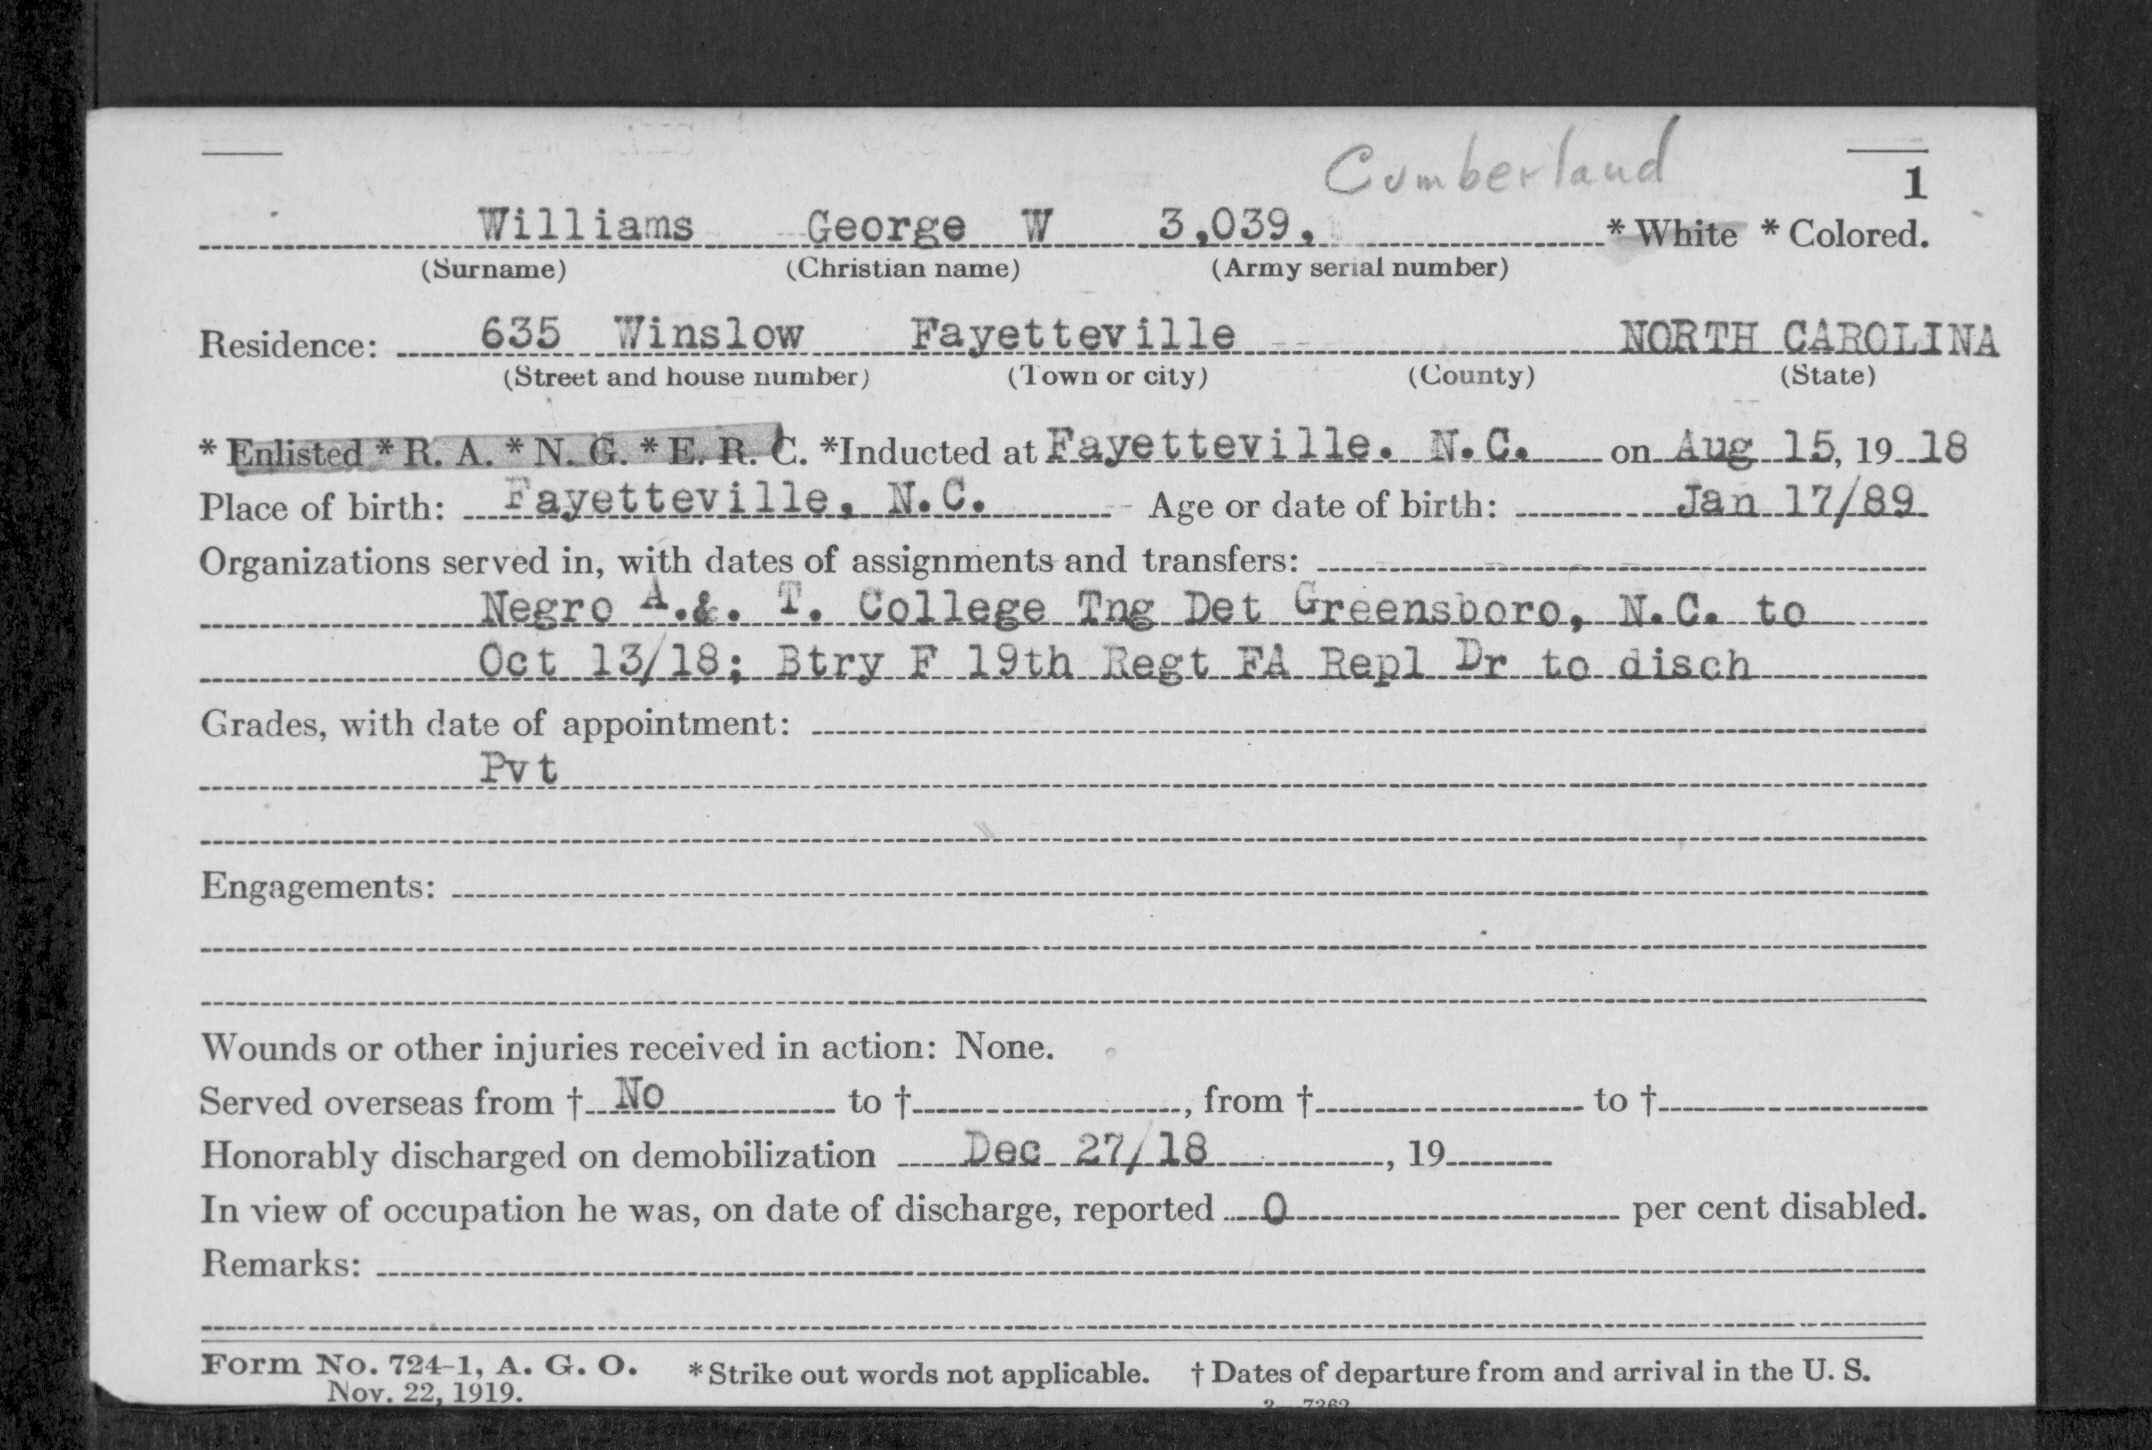 Cumberland
1
Williams George W 3,039, * White * Colored.
(Surname) (Christian name) (Army serial number)
Residence: 635 Winslow Fayetteville NORTH CAROLINA
(Street and house number) (Town or city) (County) (State)
* Enlisted * R. A. * N. G. * E. R. C. *Inducted at Fayetteville. N.C. on Aug 15, 19 18
Place of birth: Fayetteville, N.C. Age or date of birth: Jan 17/89
Organizations served in, with dates of assignments and transfers:
Negro A.&. T. College Tng Det Greensboro, N.C. to
Oct 13/18; Btry F 19th Regt FA Repl Dr to disch
Grades, with date of appointment:
Pvt
Engagements:
Wounds or other injuries received in action: None.
Served overseas from † No to † , from † to †
Honorably discharged on demobilization Dec 27/18 , 19
In view of occupation he was, on date of discharge, reported 0 per cent disabled.
Remarks:
Form No. 724-1, A. G. O. * Strike out words not applicable. † Dates of departure from and arrival in the U. S.
Nov. 22, 1919.